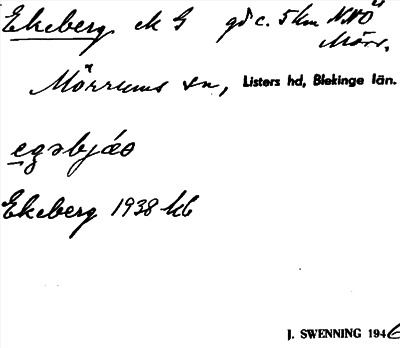 Ekeberg ek G gd c. 5 km NNÖ
Mörr.
Mörrums sn, Listers hd, Blekinge län.
egəbjäo
Ekeberg 1938 kb
J. SWENNING 1946